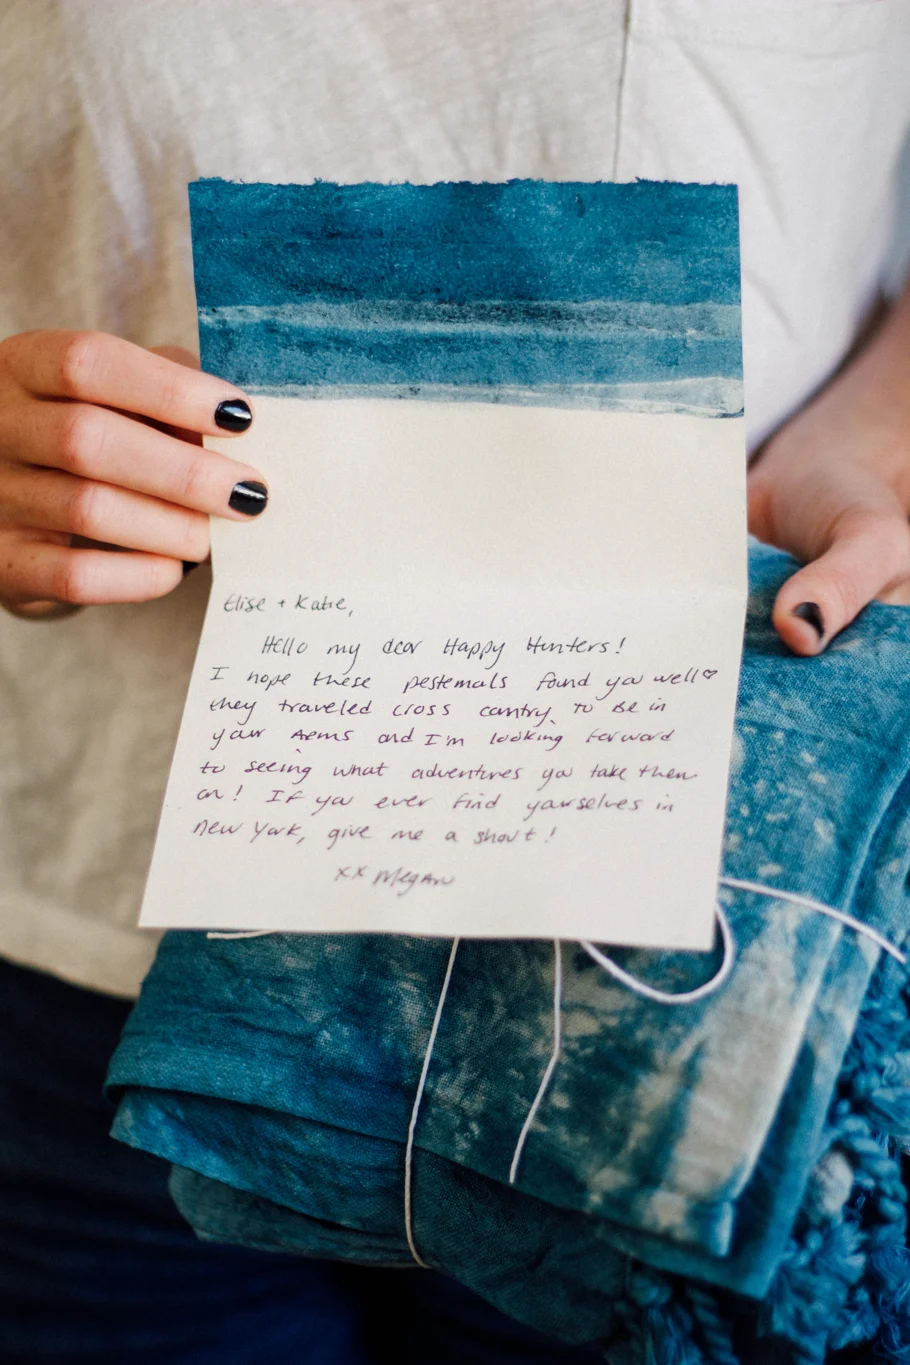 Elise + Katie,
Hello my dear Happy Hunters!
I hope these pestemals found you well♡
they traveled cross country to be in
your arms and I'm looking forward
to seeing what adventures you take them
on! If you ever find yourselves in
New York, give me a shout!
xx Megan